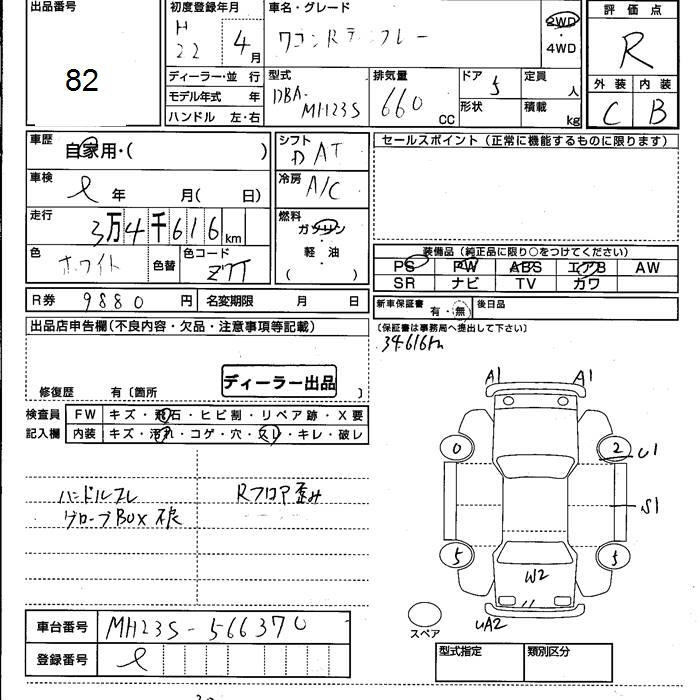 出品番号
82
初度登録年月
H
22 4月
車名・グレード
ワゴンR
2WD
・
4WD
評価点
R
外装 内装
C B
ディーラー・並 行
モデル年式 年
ハンドル 左・右
型式
DBA-
MH23S
排気量
660 CC
ドア 5
形状
定員
人
積載
kg
車歴
自家用・( )
車検
年 月( 日)
走行
3万4千616km
色
ホワイト
色替
色コード
R券 9880 円
名変期限 月 日
シフト
DAT
冷房
A/C
燃料
ガソリン
・
軽 油
( ・ )
セールスポイント (正常に機能するものに限ります)
装備品 (純正品に限り○をつけてください)
PS PW ABS エアB AW
SR ナビ TV カワ
新車保証書
有・無
後日品
(保証書は事務局へ提出して下さい)
34616km
出品店申告欄(不良内容・欠品・注意事項等記載)
修復歴 有〔箇所 〕
ディーラー出品
検査員
記入欄
FW キズ・飛石・ヒビ割・リペア跡・X要
内装 キズ・汚れ・コゲ・穴・スレ・キレ・破レ
ハンドルスレ
グローブBOX不良
Rフロア歪み
A1 A1
0 2
U1
S1
5 5
W2
UA2
スペア
車台番号 MH23S-566370
登録番号
型式指定 類別区分